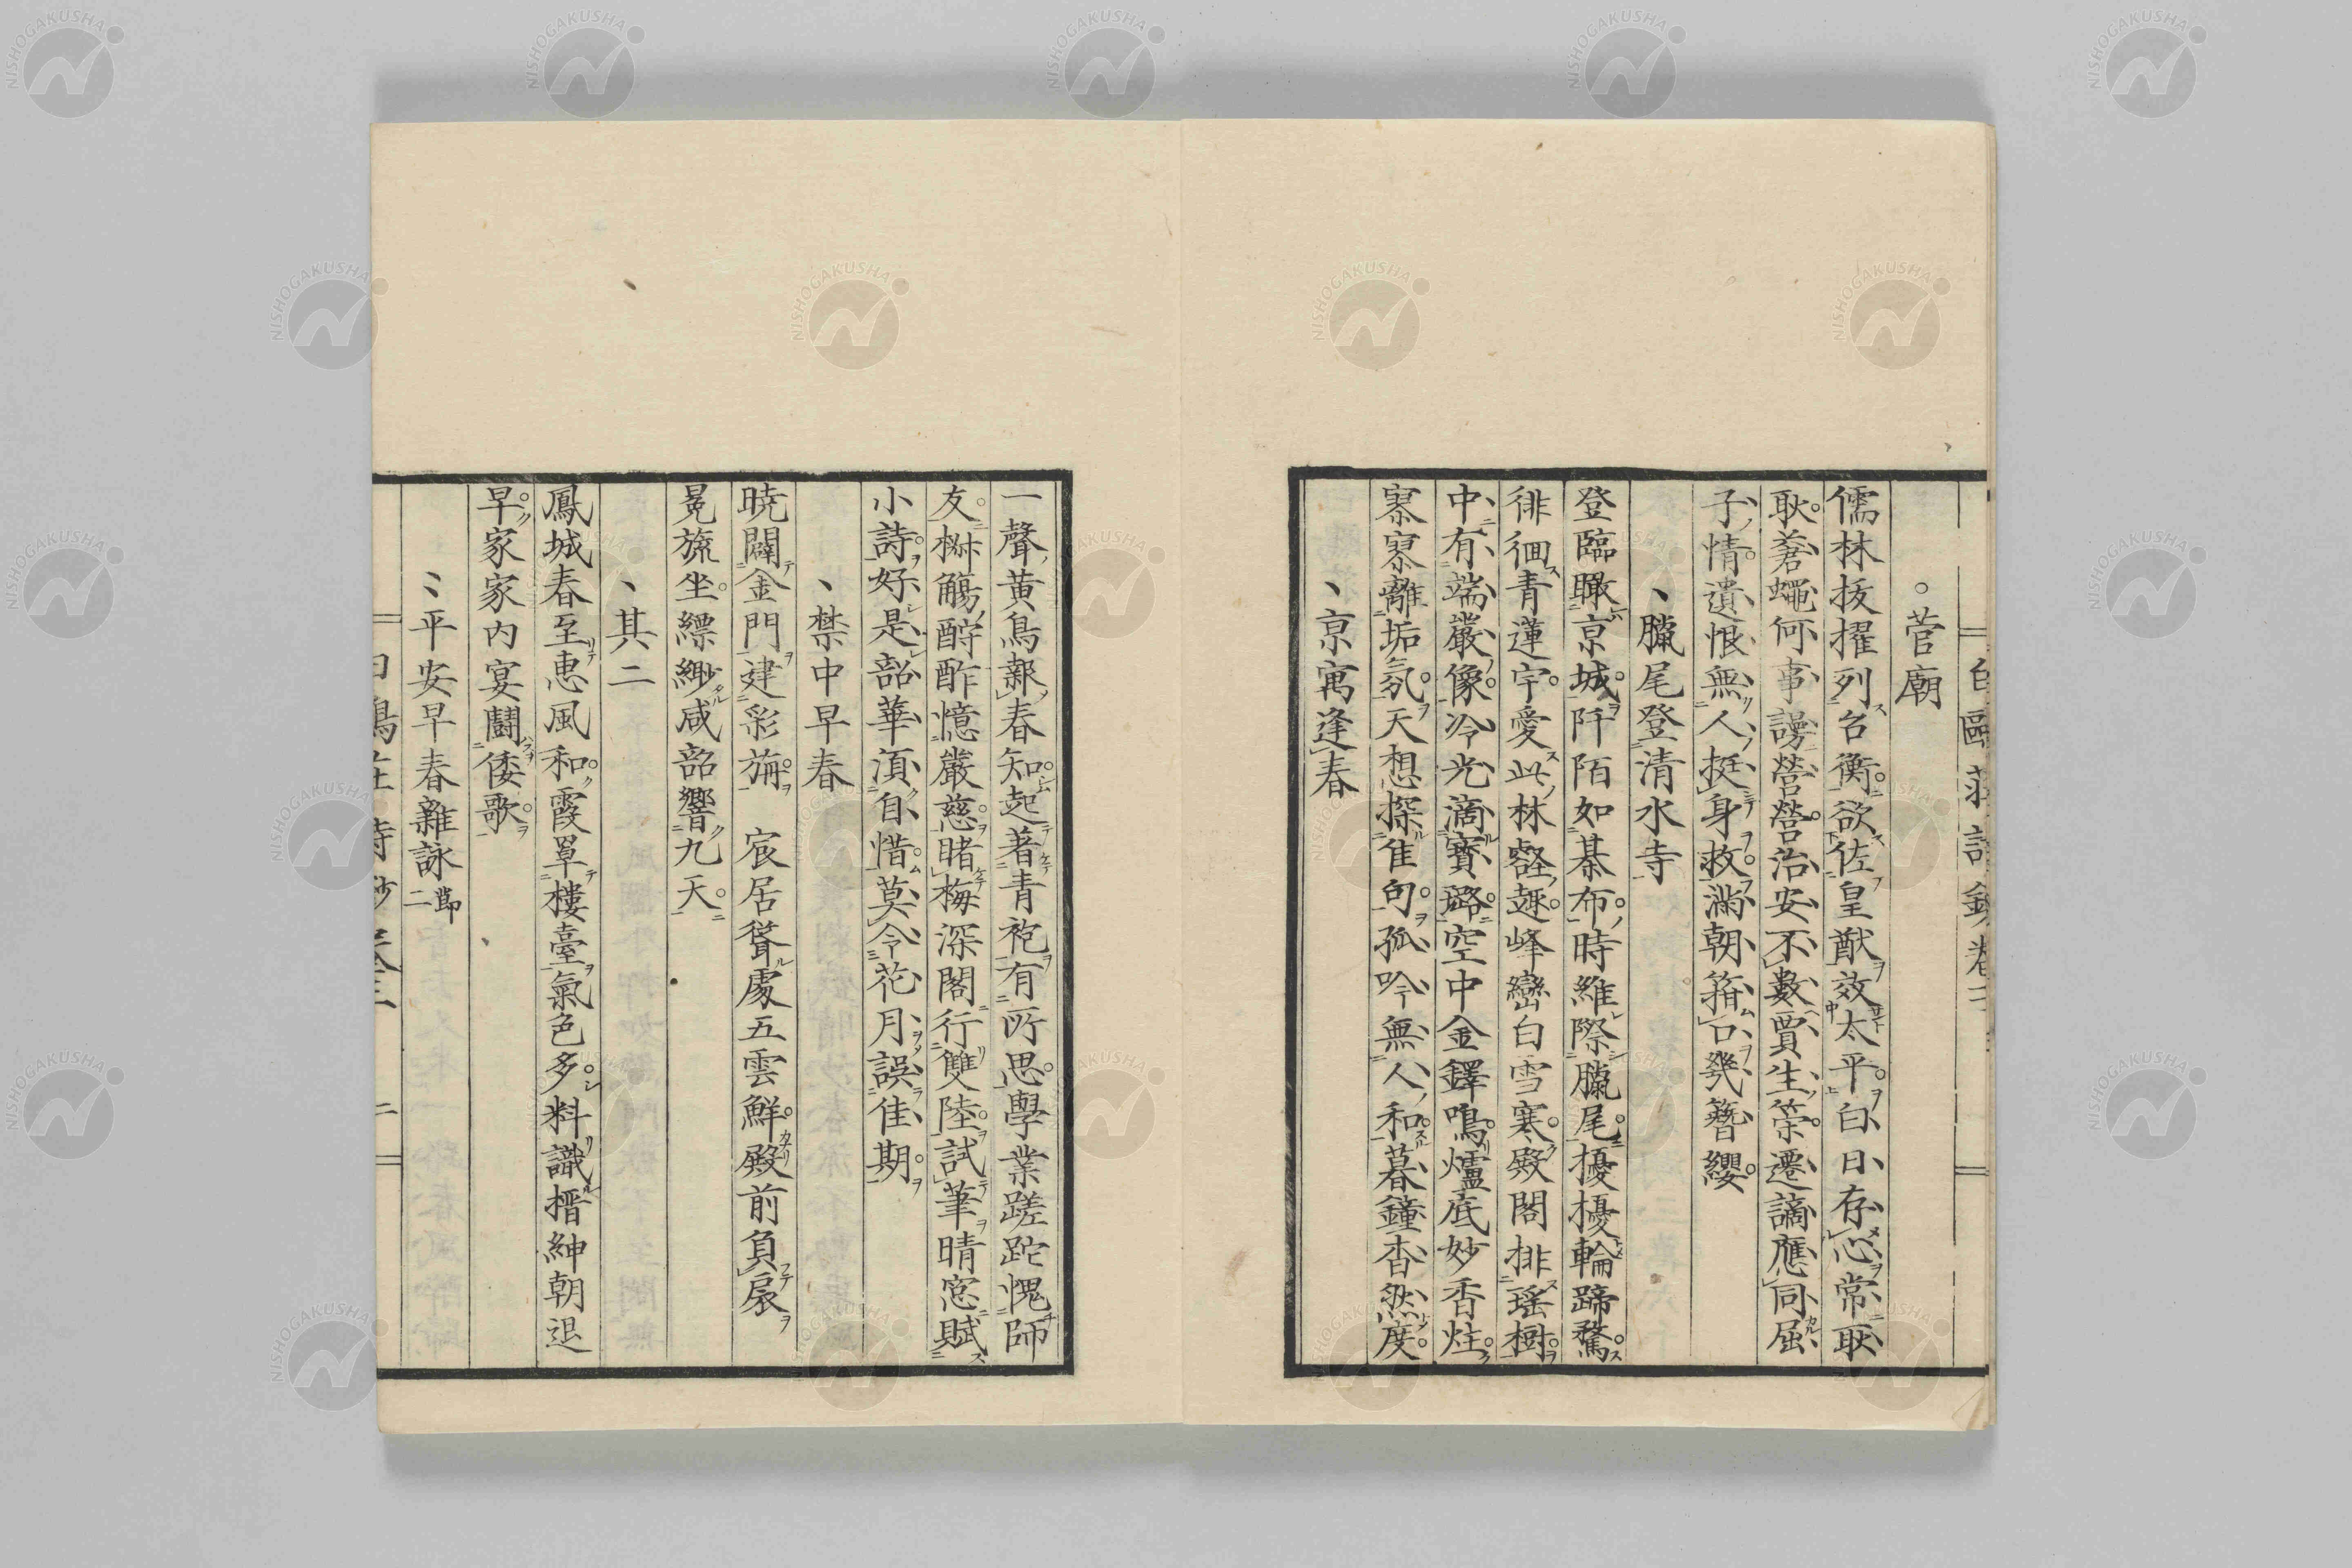 白鷗莊詩鈔卷二
菅廟
儒林拔擢列名衡欲佐皇猷效太平白日存心常耿
耿蒼蠅何事謾營營治安不數賈生策遷謫應同屈
子情遺恨無人挺身救滿朝簪笏幾簪纓
臘尾登清水寺
登臨瞰京城阡陌如棊布時維際臘尾擾擾輪蹄騖
徘徊青蓮宇愛此林壑趣峰巒白雪寒殿閣排瑤樹
中有端嚴像冷光滴寶璐空中金鐸鳴爐底妙香炷
寥寥離垢氛天想探佳句孤吟無人和暮鐘杳然度
京寓逢春
一聲黃鳥報春知起著青袍有所思學業蹉跎愧師
友樹觴酧酢憶嚴慈睹梅深閣行雙陸試筆晴窓賦
小詩好是韶華須自惜莫令花月誤佳期
禁中早春
曉闢金門建彩旃宸居聳處五雲鮮殿前負扆
冕旒坐縹緲咸韶響九天
其二
鳳城春至惠風和霞罩樓臺氣色多料識搢紳朝退
早家家內宴鬪倭歌
平安早春雜詠 節二
白鷗莊詩鈔卷三 二